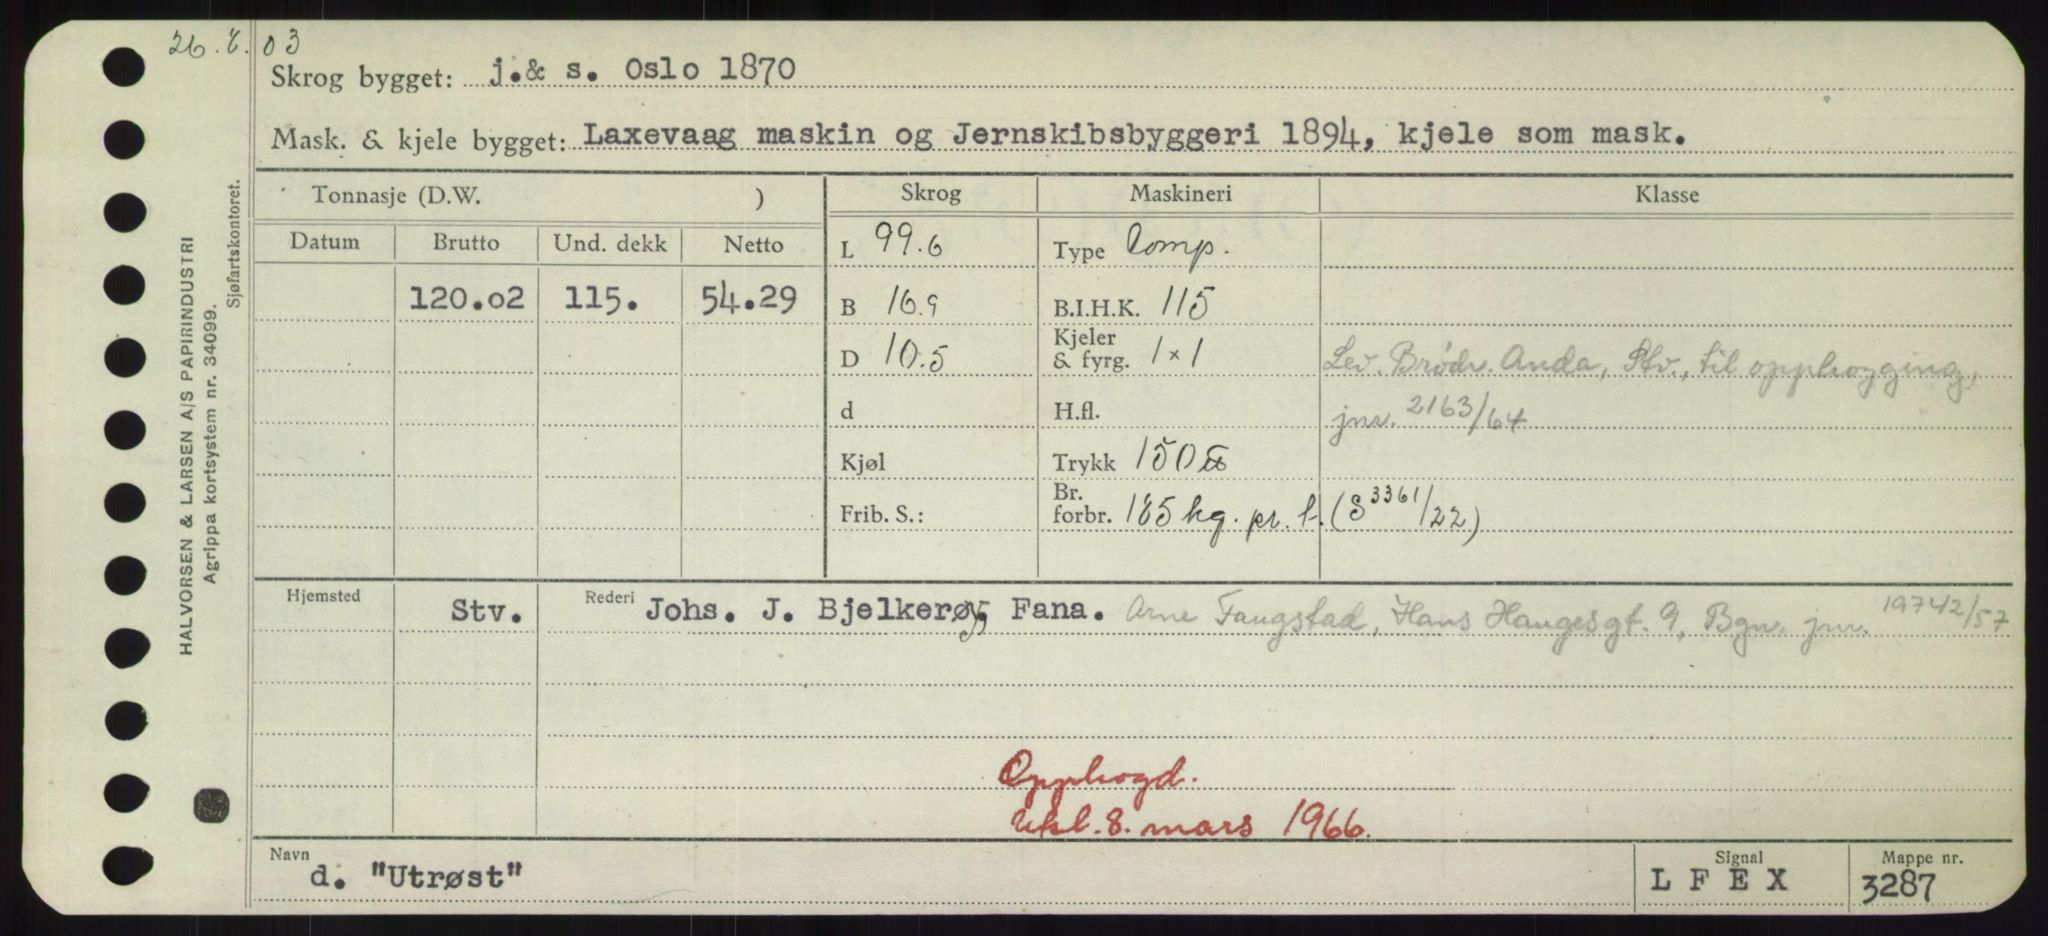 26.8.03
Skrog bygget: j.& s. Oslo 1870
Mask. & kjele bygget: Laxevaag maskin og Jernskibsbyggeri 1894, kjele som mask.
Tonnasje (D.W. ) Skrog Maskineri Klasse
Datum Brutto Und. dekk Netto L 99.6 Type Comp.
120.02 115. 54.29 B 16.9 B.I.H.K. 115
D 10.5 Kjeler & fyrg. 1×1 Lev. Brødr. Anda, Stv., til opphogging,
d H.fl. jnr. 2163/64
Kjøl Trykk 150
Frib. S.: Br. forbr. 185 kg. pr. t. (S 3361/22)
Hjemsted Stv. Rederi Johs. J. Bjelkerøy, Fana. Arne Faugstad, Hans Haugesgt. 9, Bgn. jnr. 19742/57
Opphogd.
Ukl. 8. mars 1966.
Navn d. "Utrøst" Signal L F E X Mappe nr. 3287
HALVORSEN & LARSEN A/S PAPIRINDUSTRI
Agrippa kortsystem nr. 34099.
Sjøfartskontoret.